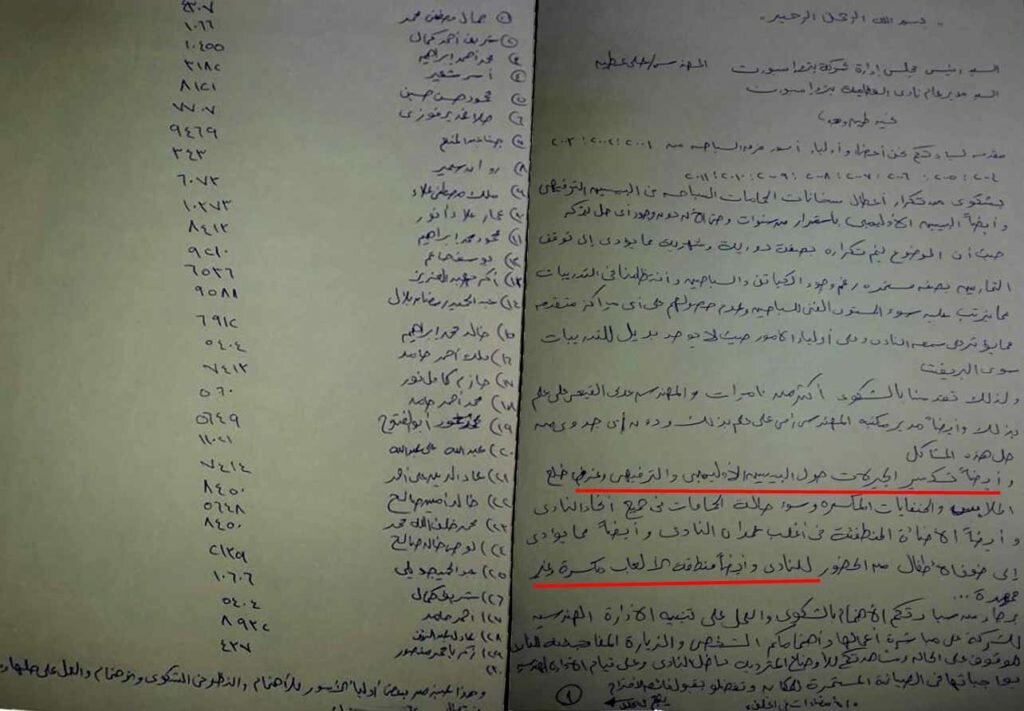 بسم الله الرحمن الرحيم
السيد رئيس مجلس إدارة شركة بتروسبورت المهندس/
السيد مدير عام نادى بتروسبورت
تحية طيبة وبعد
مقدمه لسيادتكم من أعضاء وأولياء أمور فرق السباحه من ٢٠٠١، ٢٠٠٢، ٢٠٠٣
٢٠٠٤، ٢٠٠٥، ٢٠٠٦، ٢٠٠٧، ٢٠٠٨، ٢٠٠٩، ٢٠١٠، ٢٠١١
بشكوى من تكرار أعطال سخانات الحمامات السباحه فى البيسين الترفيهى
وأيضاً البيسين الأوليمبى باستمرار من سنوات وحتى الآن دون وجود أى حل يذكر
حيث أن الموضوع يتم تكراره بصفة دورية وشهرية مما يؤدى إلى توقف
التمارين بصفه مستمره رغم وجود الكباتن والسباحين وانتظامنا فى التدريبات
مما يترتب عليه سوء المستوى الفنى للسباحين وعدم حصولهم على أى مراكز متقدمه
مما يؤثر على سمعه النادى وعلى أولياء الأمور حيث لا يوجد بديل للتدريبات
سوى
ولذلك تقدمنا بالشكوى أكثر من مرات والمهندس على علم
بذلك وأيضاً مدير مكتبه المهندس على علم بذلك ودون أى جدوى من
حل هذه المشاكل
وأيضاً تكسير حول البيسين الأوليمبى والترفيهى وغرف خلع
الملابس والحنفيات المكسره وسوء حالة الحمامات فى جميع أنحاء النادى
وأيضاً الأضائة المنطفئة فى أغلب ممرات النادى وأيضاً مما يؤدى
إلى خوف الأطفال من الحضور للنادى وأيضاً منطقه الألعاب مكسرة وغير
ممهدة ...
برجاء من سيادتكم الأهتمام بالشكوى والعمل على تنبيه الأدارة الهندسيه
للشركة على مباشرة أعمالها وأهتمامكم الشخصى والزيارة المفاجئة للنادى
للوقوف على الحالة ومشاهدتكم للأوضاع المترديه داخل النادى وعلى قيام الأدارة الهندسيه
بواجباتها فى الصيانة المستمرة للمكان وتفضلوا بقبول فائق الأحترام
١
١) جمال مصطفى محمد ٤٣٠٧
٢) شريف أحمد كمال ١٠٦٦
٣) محمد أحمد إبراهيم ١٠٤٥٥
٤) أسر سمير ٣١٨٢
٥) محمود حسن حسين ٨١٢١
٦) فوزى ٧٧٠٧
٧) ٩٤٦٩
٨) روان سمير ٣٤٣
٩) ملك مصطفى علاء ٦٠٧٢
١٠) عمار علاء أنور ١٠٢٧٣
١١) محمود محمد إبراهيم ٨٤١٢
١٢) يوسف ٩٢١٠
١٣) أكرم عبد العزيز ٦٥٣٦
١٤) عبد الحميد رمضان بلال ٩٥٨٨
١٥) خالد محمد إبراهيم ٦٩١٢
١٦) ملك أحمد حامد ٥٤٠٤
١٧) حازم كامل نور ٧٤١٢
١٨) محمد أحمد حامد ٥٦٠
١٩) أبو الفتوح ٥٦٤٩
٢٠) عبد الله على عبد الله ١١٠٢١
٢١) ٧٤١٤
٢٢) خالد أمين صالح ٨٤٥٠
٢٣) محمد خلف الله محمد ٥٦٤٨
٢٤) خالد صالح ٨٤٥٠
٢٥) عبد الحميد ٢١٣٩
٢٦) شريف كمال ١٠٦٠٦
٢٧) أحمد حامد ٥٤٠٤
٢٨) عادل ٨٩٣٢
٢٩) منصور ٤٣٧
٣٠)
وهذا عينه من بعض أولياء الأمور للأهتمام والنظر فى الشكوى والأهتمام والعمل على حلها